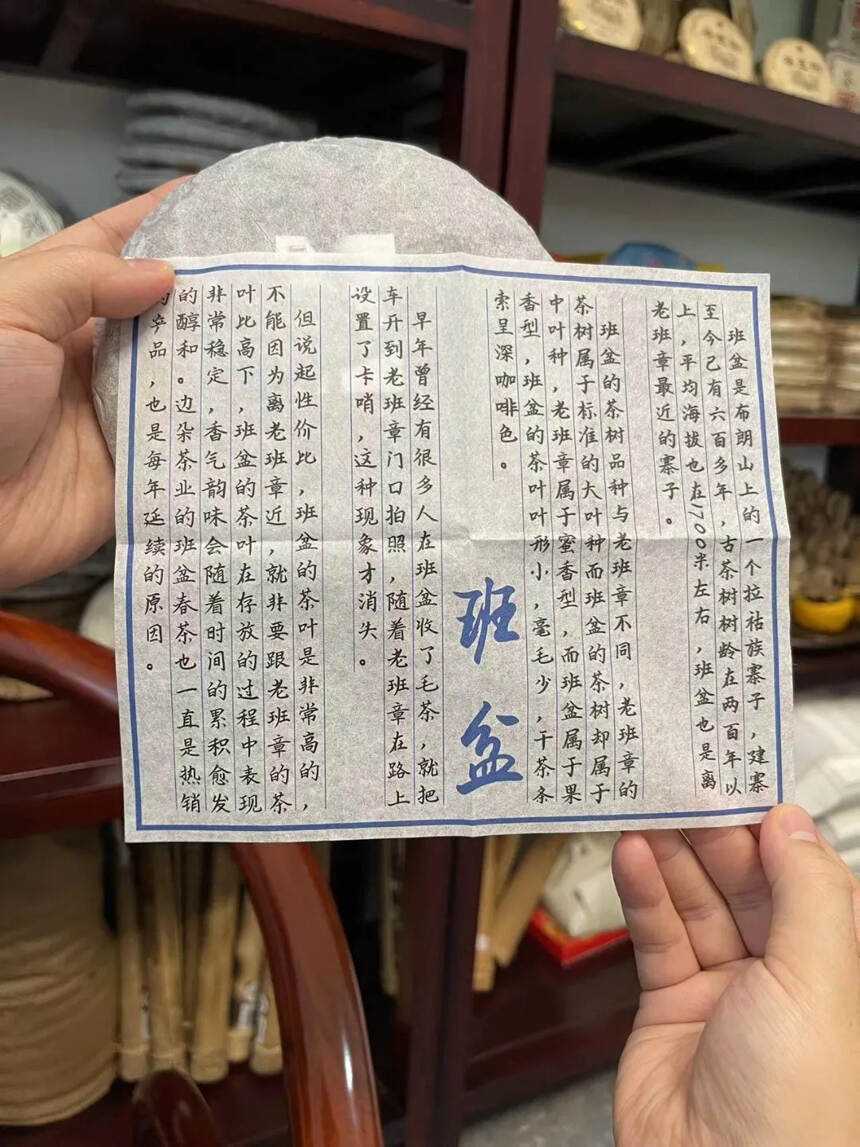 班盆是布朗山上的一个拉祜族寨子，建寨
至今已有六百多年，古茶树树龄在两百年以
上，平均海拔也在1700米左右，班盆也是离
老班章最近的寨子。
班盆的茶树品种与老班章不同，老班章的
茶树属于标准的大叶种而班盆的茶树却属于
中叶种，老班章属于蜜香型，而班盆属于果
香型，班盆的茶叶叶形小，毫毛少，干茶条
索呈深咖啡色。
班盆
早年曾经有很多人在班盆收了毛茶，就把
车开到老班章门口拍照，随着老班章在路上
设置了卡哨，这种现象才消失。
但说起性价比，班盆的茶叶是非常高的，
不能因为离老班章近，就非要跟老班章的茶
叶比高下，班盆的茶叶在存放的过程中表现
非常稳定，香气韵味会随着时间的累积愈发
的醇和。边杂茶业的班盆春茶也一直是热销
的产品，也是每年延续的原因。